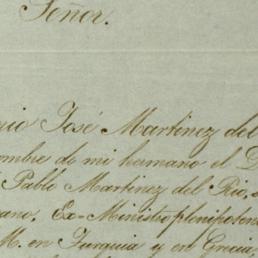 Señor.
nio José Martinez del
ombre de mi hermano el D
Pablo Martinez del Rio,
ano, Ex-Ministro plenipoten
M. en Turquia y en Grecia,